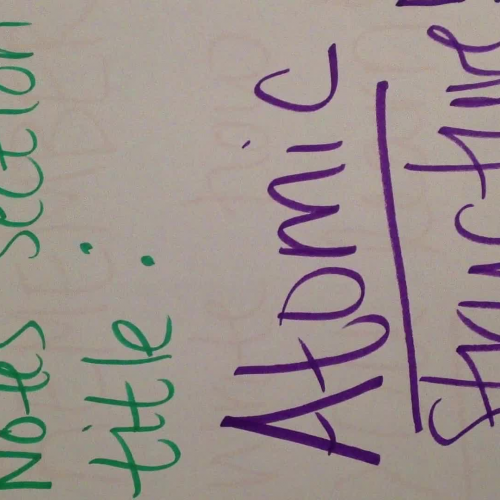 Notes section
title:
Atomic
Structure